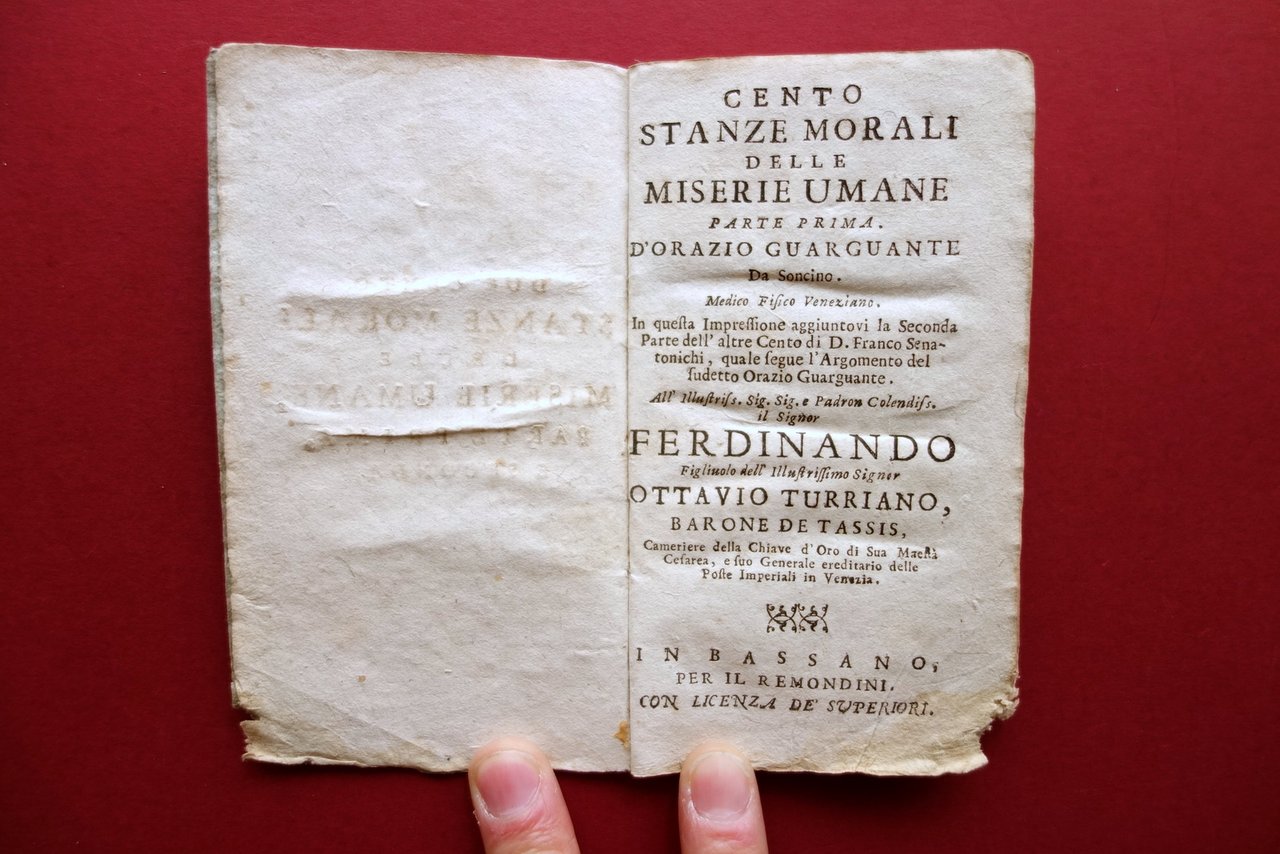 DUECENTO
STANZE MORALI
DELLE
MISERIE UMANE
PARTE PRIMA
E SECONDA
CENTO
STANZE MORALI
DELLE
MISERIE UMANE
PARTE PRIMA.
D'ORAZIO GUARGUANTE
Da Soncino.
Medico Fiſico Veneziano.
In queſta Impreſſione aggiuntovi la Seconda
Parte dell' altre Cento di D. Franco Sena-
tonichi, quale ſegue l'Argomento del
ſudetto Orazio Guarguante.
All' Illuſtriſs. Sig. Sig. e Padron Colendiſs.
il Signor
FERDINANDO
Figliuolo dell' Illuſtriſſimo Signor
OTTAVIO TURRIANO,
BARONE DE TASSIS,
Cameriere della Chiave d'Oro di Sua Maeſtà
Ceſarea, e ſuo Generale ereditario delle
Poſte Imperiali in Venezia.
IN BASSANO,
PER IL REMONDINI.
CON LICENZA DE' SUPERIORI.